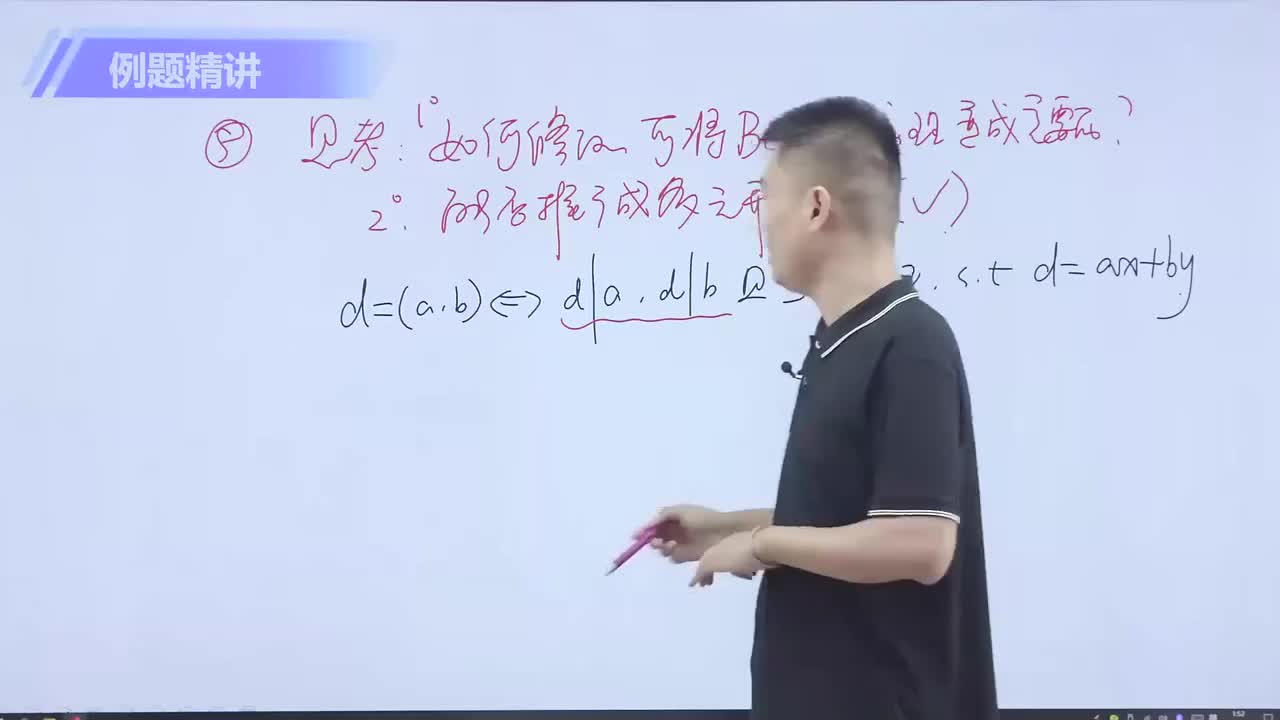 例题精讲
⑤ 思考: 1° 如何修改 可将Be 理变成充要的?
2°. 能否推广成多元形 (✓)
d=(a,b)⟺ d|a, d|b 且 ∃ , s.t d=ax+by
1:52